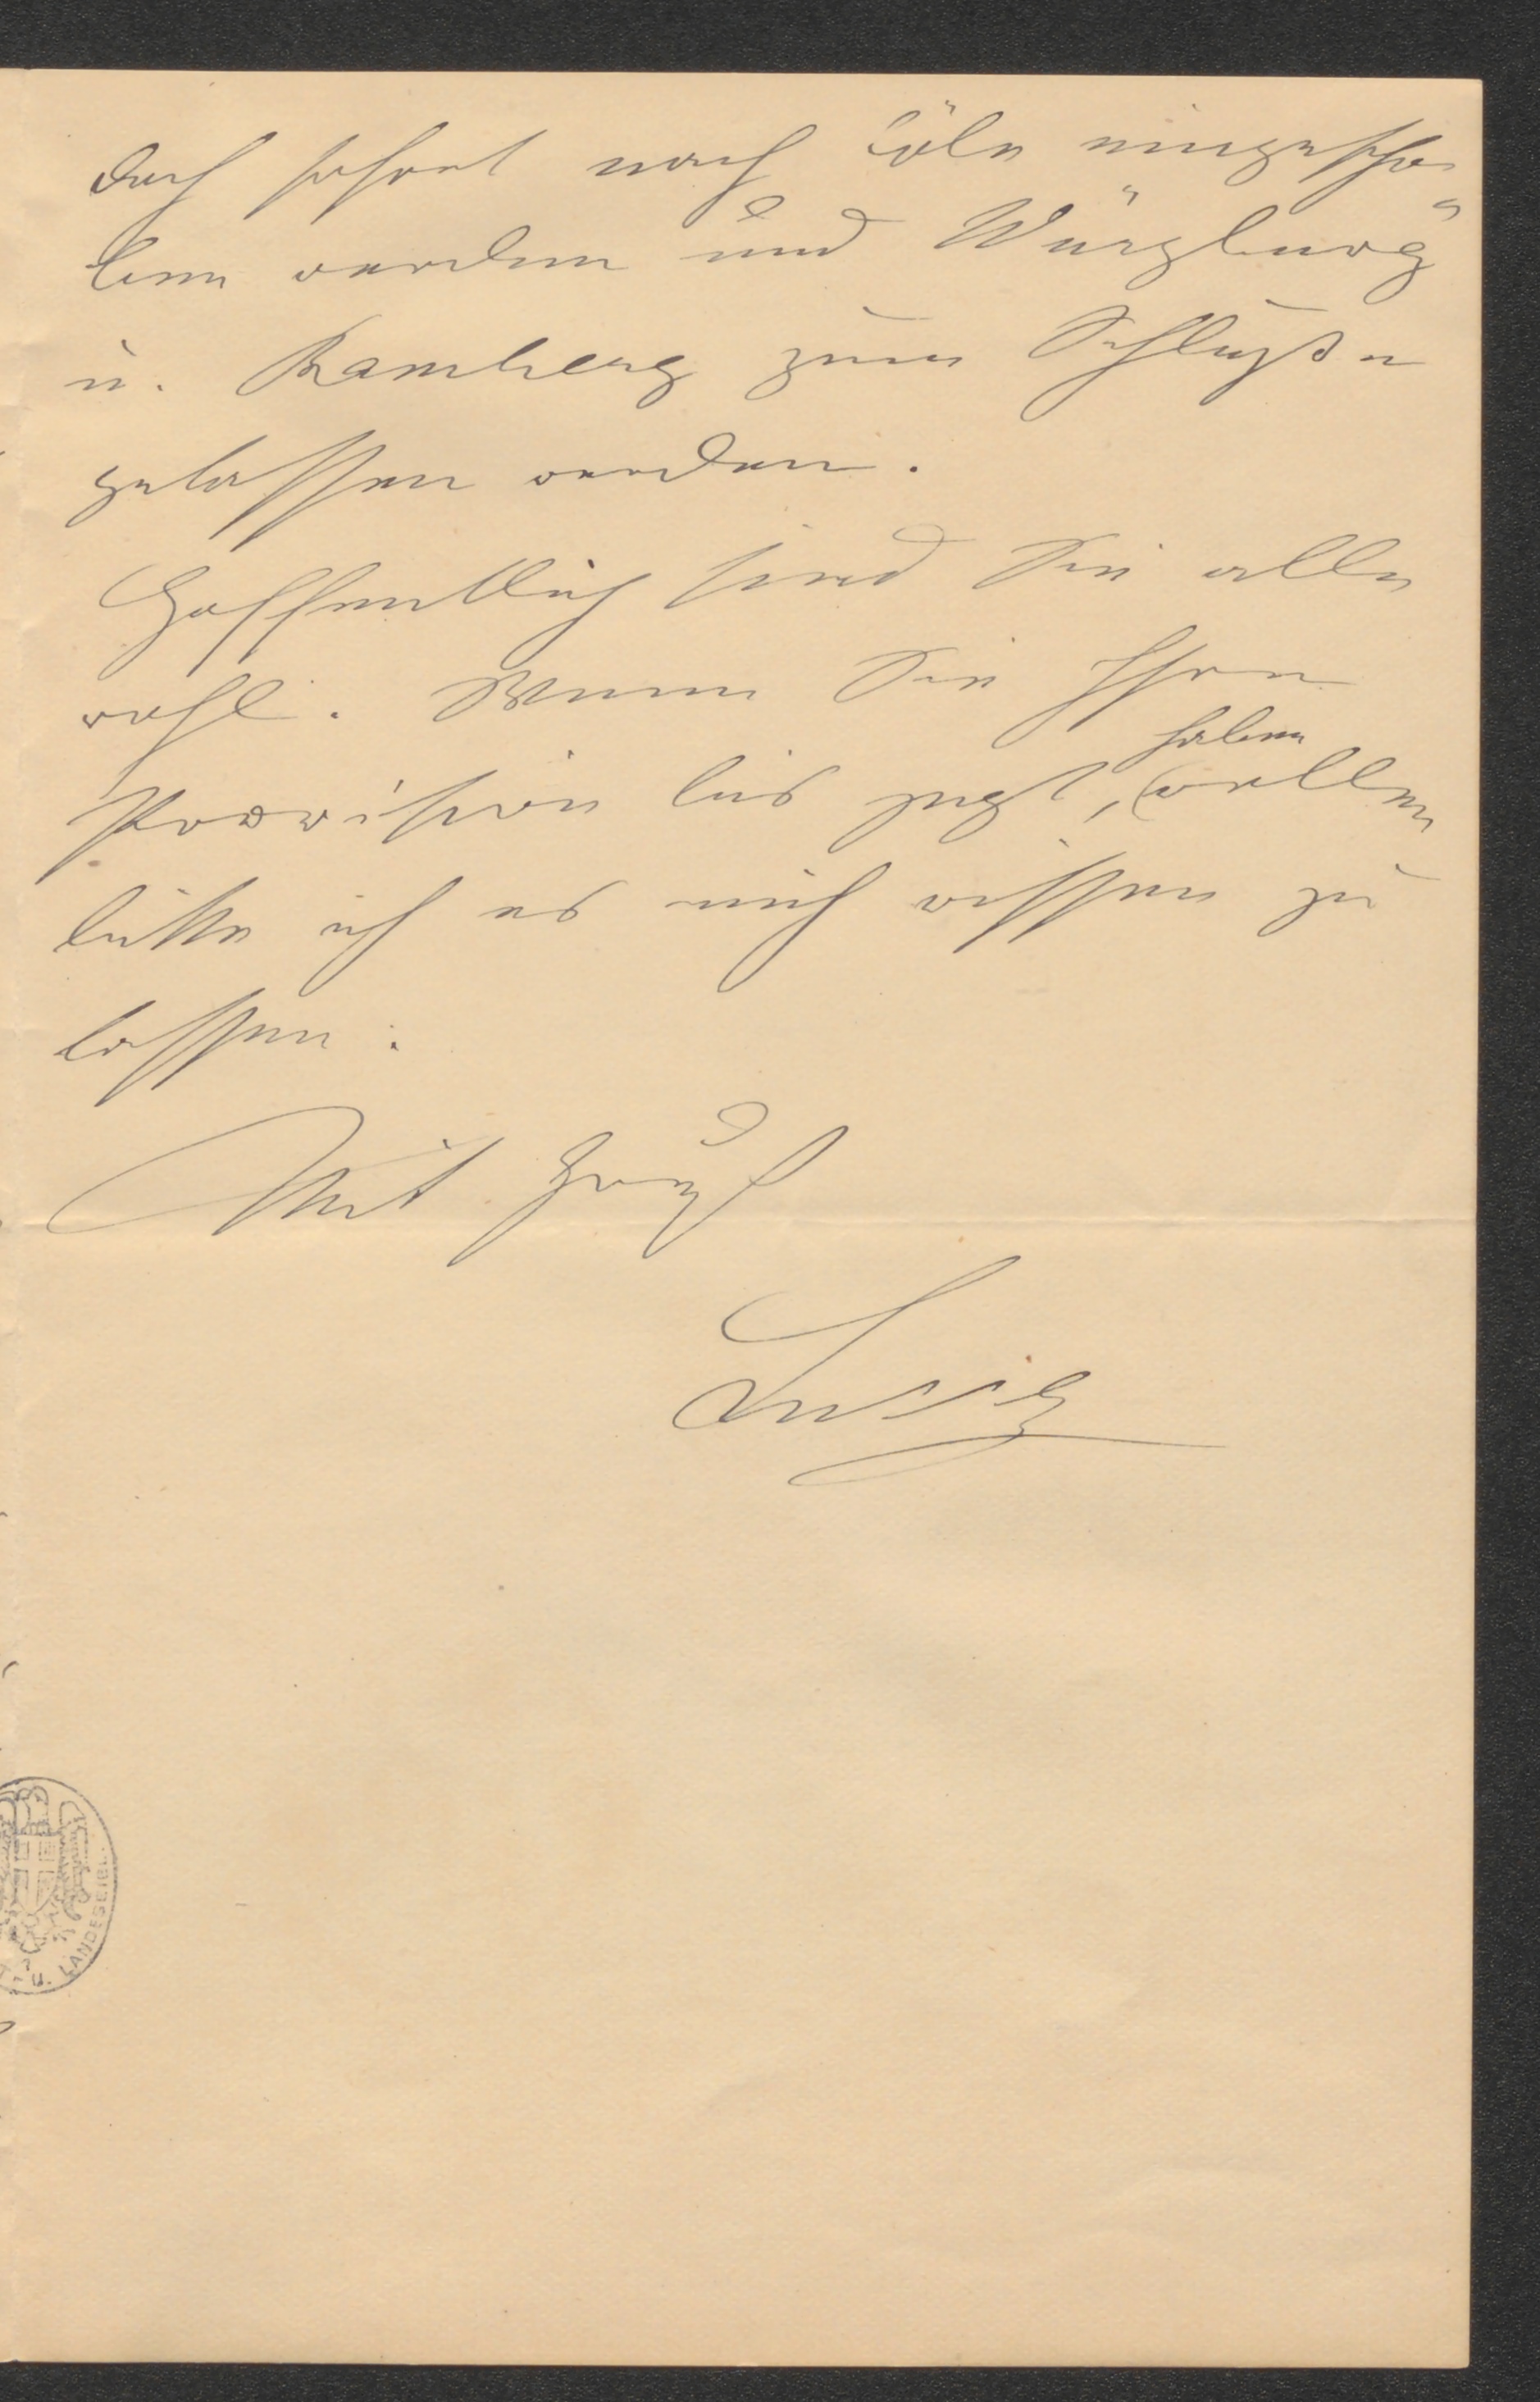 doch sofort nach Cöln eingescho-
ben werden und Würzburg
u. Bamberg zum Schluße
gelassen werden.
Hoffentlich sind Sie alle
wohl. Wenn Sie Ihre
haben
Provision bis jetzt, wollen
bitte ich es mich wissen zu
lassen.
Mit Gruß
U. LANDESBIBL.